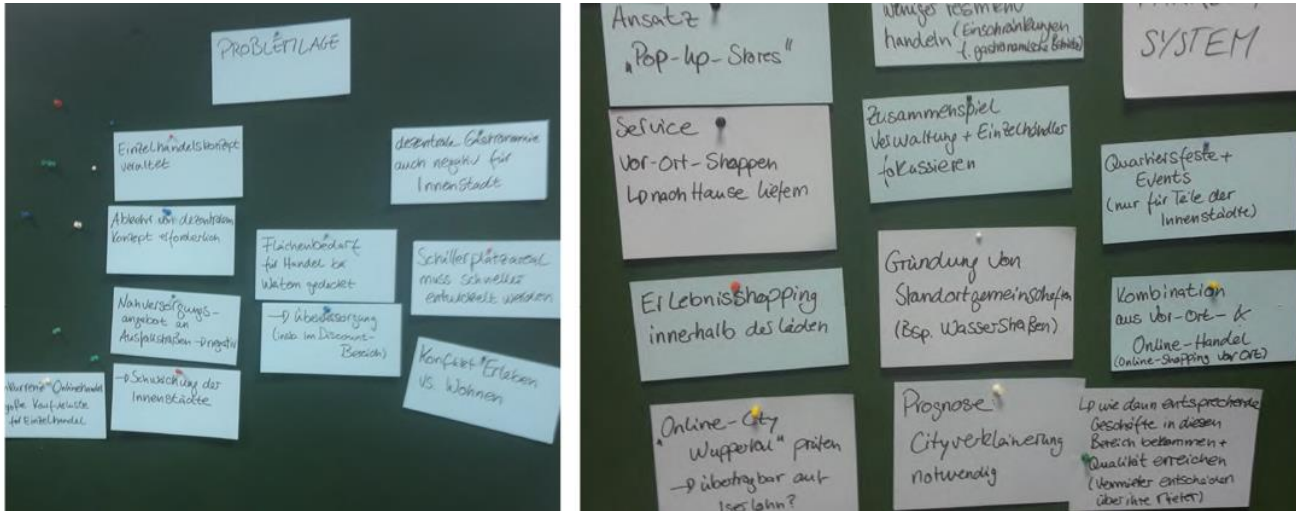 PROBLEMLAGE
Einzelhandelskonzept
veraltet
Abkehr von dezentralem
Konzept erforderlich
Nahversorgungs-
angebot an
Ausfallstraßen → negativ
→ Schwächung der
Innenstädte
Onlinehandel
große Kaufverluste
für Einzelhandel
Flächenbedarf
für Handel bei
Weitem gedeckt
→ Überversorgung
(insb. im Discount-
Bereich)
dezentrale Gastronomie
auch negativ für
Innenstadt
Schillerplatzareal
muss schneller
entwickelt werden
Konflikt "Erleben
vs. Wohnen
Ansatz
„Pop-up-Stores"
Service
Vor-Ort-Shoppen
↳ nach Hause liefern
Erlebnisshopping
innerhalb des Laden
"Online-City
Wuppertal" prüfen
→ übertragbar auf
Iserlohn?
weniger
handeln (Einschränkungen
f. gastronomische Betriebe)
Zusammenspiel
Verwaltung + Einzelhändler
fokussieren
Gründung von
Standortgemeinschaften
(Bsp. Wasserstraßen)
Prognose
Cityverkleinerung
notwendig
SYSTEM
Quartiersfeste +
Events
(nur für Teile der
Innenstädte)
Kombination
aus Vor-Ort- &
Online-Handel
(Online-Shopping vor Ort)
↳ wie dann entsprechende
Geschäfte in diesen
Bereich bekommen +
Qualität erreichen
(Vermieter entscheiden
über ihre Mieter)